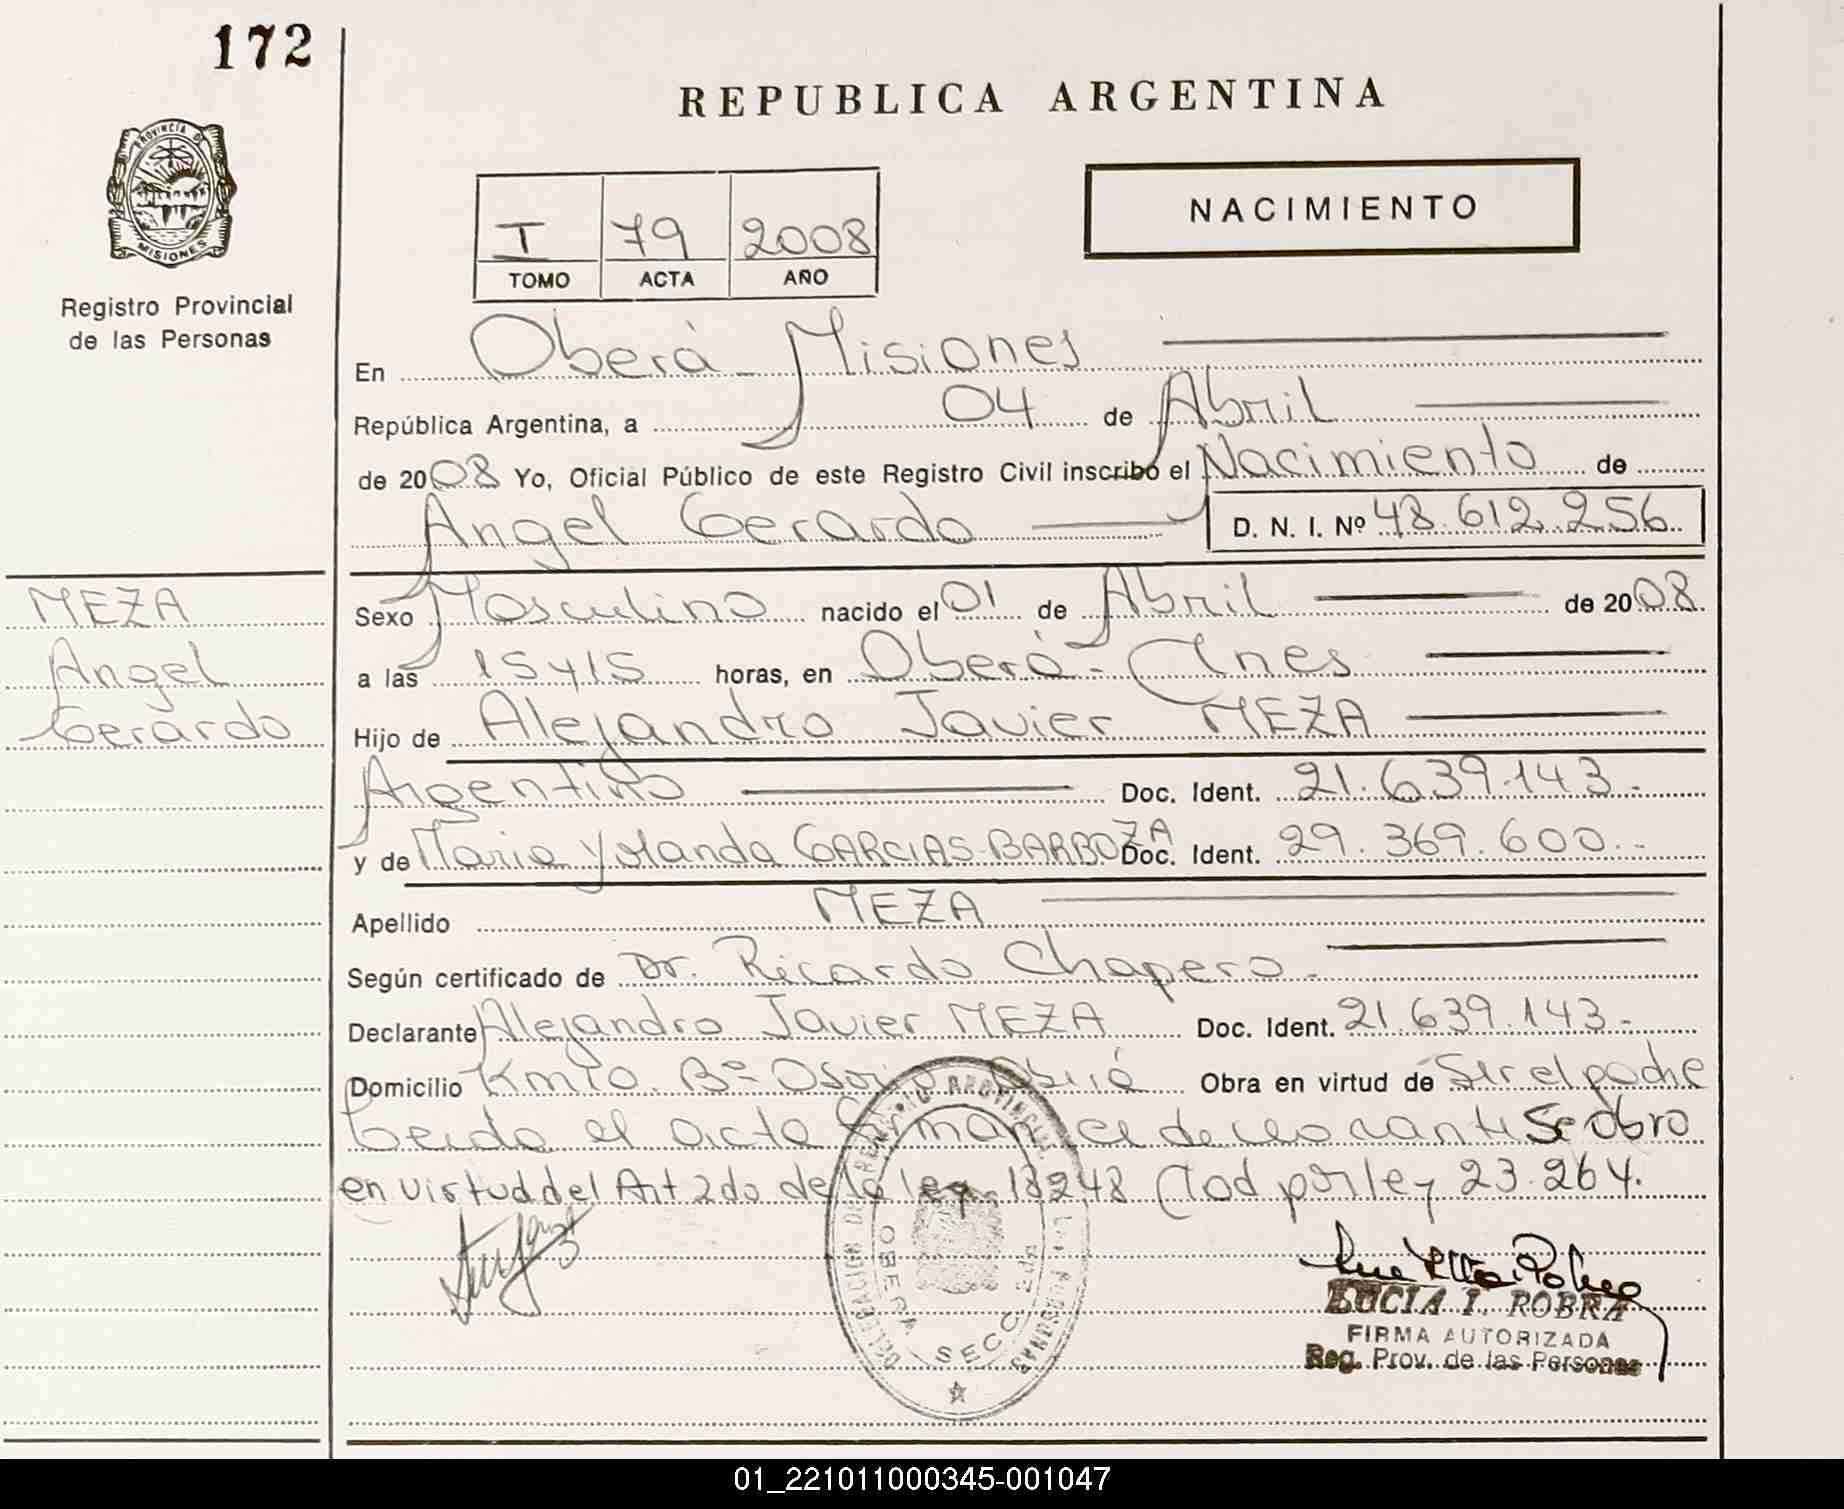 172
REPUBLICA ARGENTINA
PROVINCIA DE
MISIONES
Registro Provincial
de las Personas
I 79 2008
TOMO ACTA AÑO
NACIMIENTO
En Oberá Misiones
República Argentina, a 04 de Abril
de 2008 Yo, Oficial Público de este Registro Civil inscribo el Nacimiento de
Angel Gerardo D. N. I. Nº 48.612.256
MEZA
Angel
Gerardo
Sexo Masculino nacido el 01 de Abril de 2008
a las 15 y 15 horas, en Oberá - Mnes
Hijo de Alejandro Javier MEZA
Argentino Doc. Ident. 21.639.143.-
y de Maria Yolanda GARCIAS-BARBOZA Doc. Ident. 29.369.600.-
Apellido MEZA
Según certificado de Dr. Ricardo Chapero.-
Declarante Alejandro Javier MEZA Doc. Ident. 21.639.143.-
Domicilio Km 10. Bº Osorio Oberá Obra en virtud de Ser el padre
Leida el acta firman el declarante Se obro
en virtud del Art 2do de la ley 18248 Mod por ley 23.264.
DELEGACION DE REGISTRO PROVINCIAL DE LAS PERSONAS
OBERA SECC
LUCIA I. ROBRA
FIRMA AUTORIZADA
Reg. Prov. de las Personas
01_221011000345-001047